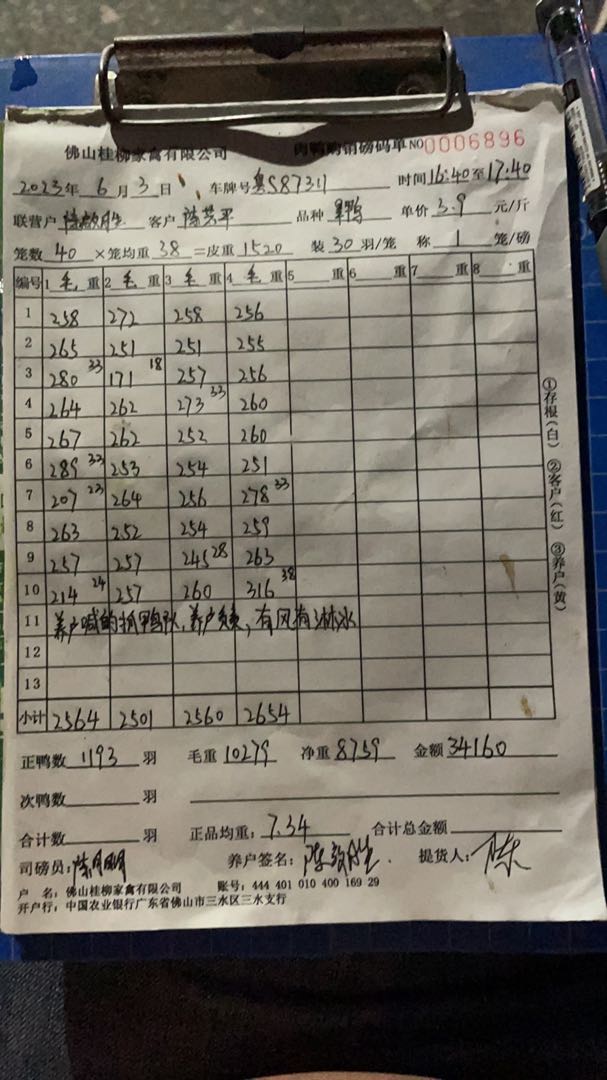 佛山桂柳家禽有限公司 肉鸭购销磅码单 NO 0006896
2023年 6月 3日 车牌号 粤S87311 时间 16:40 至 17:40
联营户 客户 品种 单价 3.9 元/斤
笼数 40 ×笼均重 38 =皮重 1520 装 30 羽/笼 称 1 笼/磅
编号 1 毛 重 2 毛 重 3 毛 重 4 毛 重 5 重 6 重 7 重 8 重
1 258 272 258 256
2 265 251 251 255
3 280 33 171 18 257 256
4 264 262 273 33 260
5 267 262 252 260
6 289 33 253 254 251
7 207 23 264 256 278 33
8 263 252 254 259
9 257 257 245 28 263
10 214 24 257 260 316 38
11 养户喊的抓鸭队,养户负责,有风有淋水
12
13
小计 2564 2501 2560 2654
正鸭数 1193 羽 毛重 10279 净重 8759 金额 34160
次鸭数 羽
合计数 羽 正品均重: 7.34 合计总金额
司磅员: 养户签名: 提货人: 陈
户 名: 佛山桂柳家禽有限公司 账号: 444 401 010 400 169 29
开户行: 中国农业银行广东省佛山市三水区三水支行
①存根(白) ②客户(红) ③养户(黄)